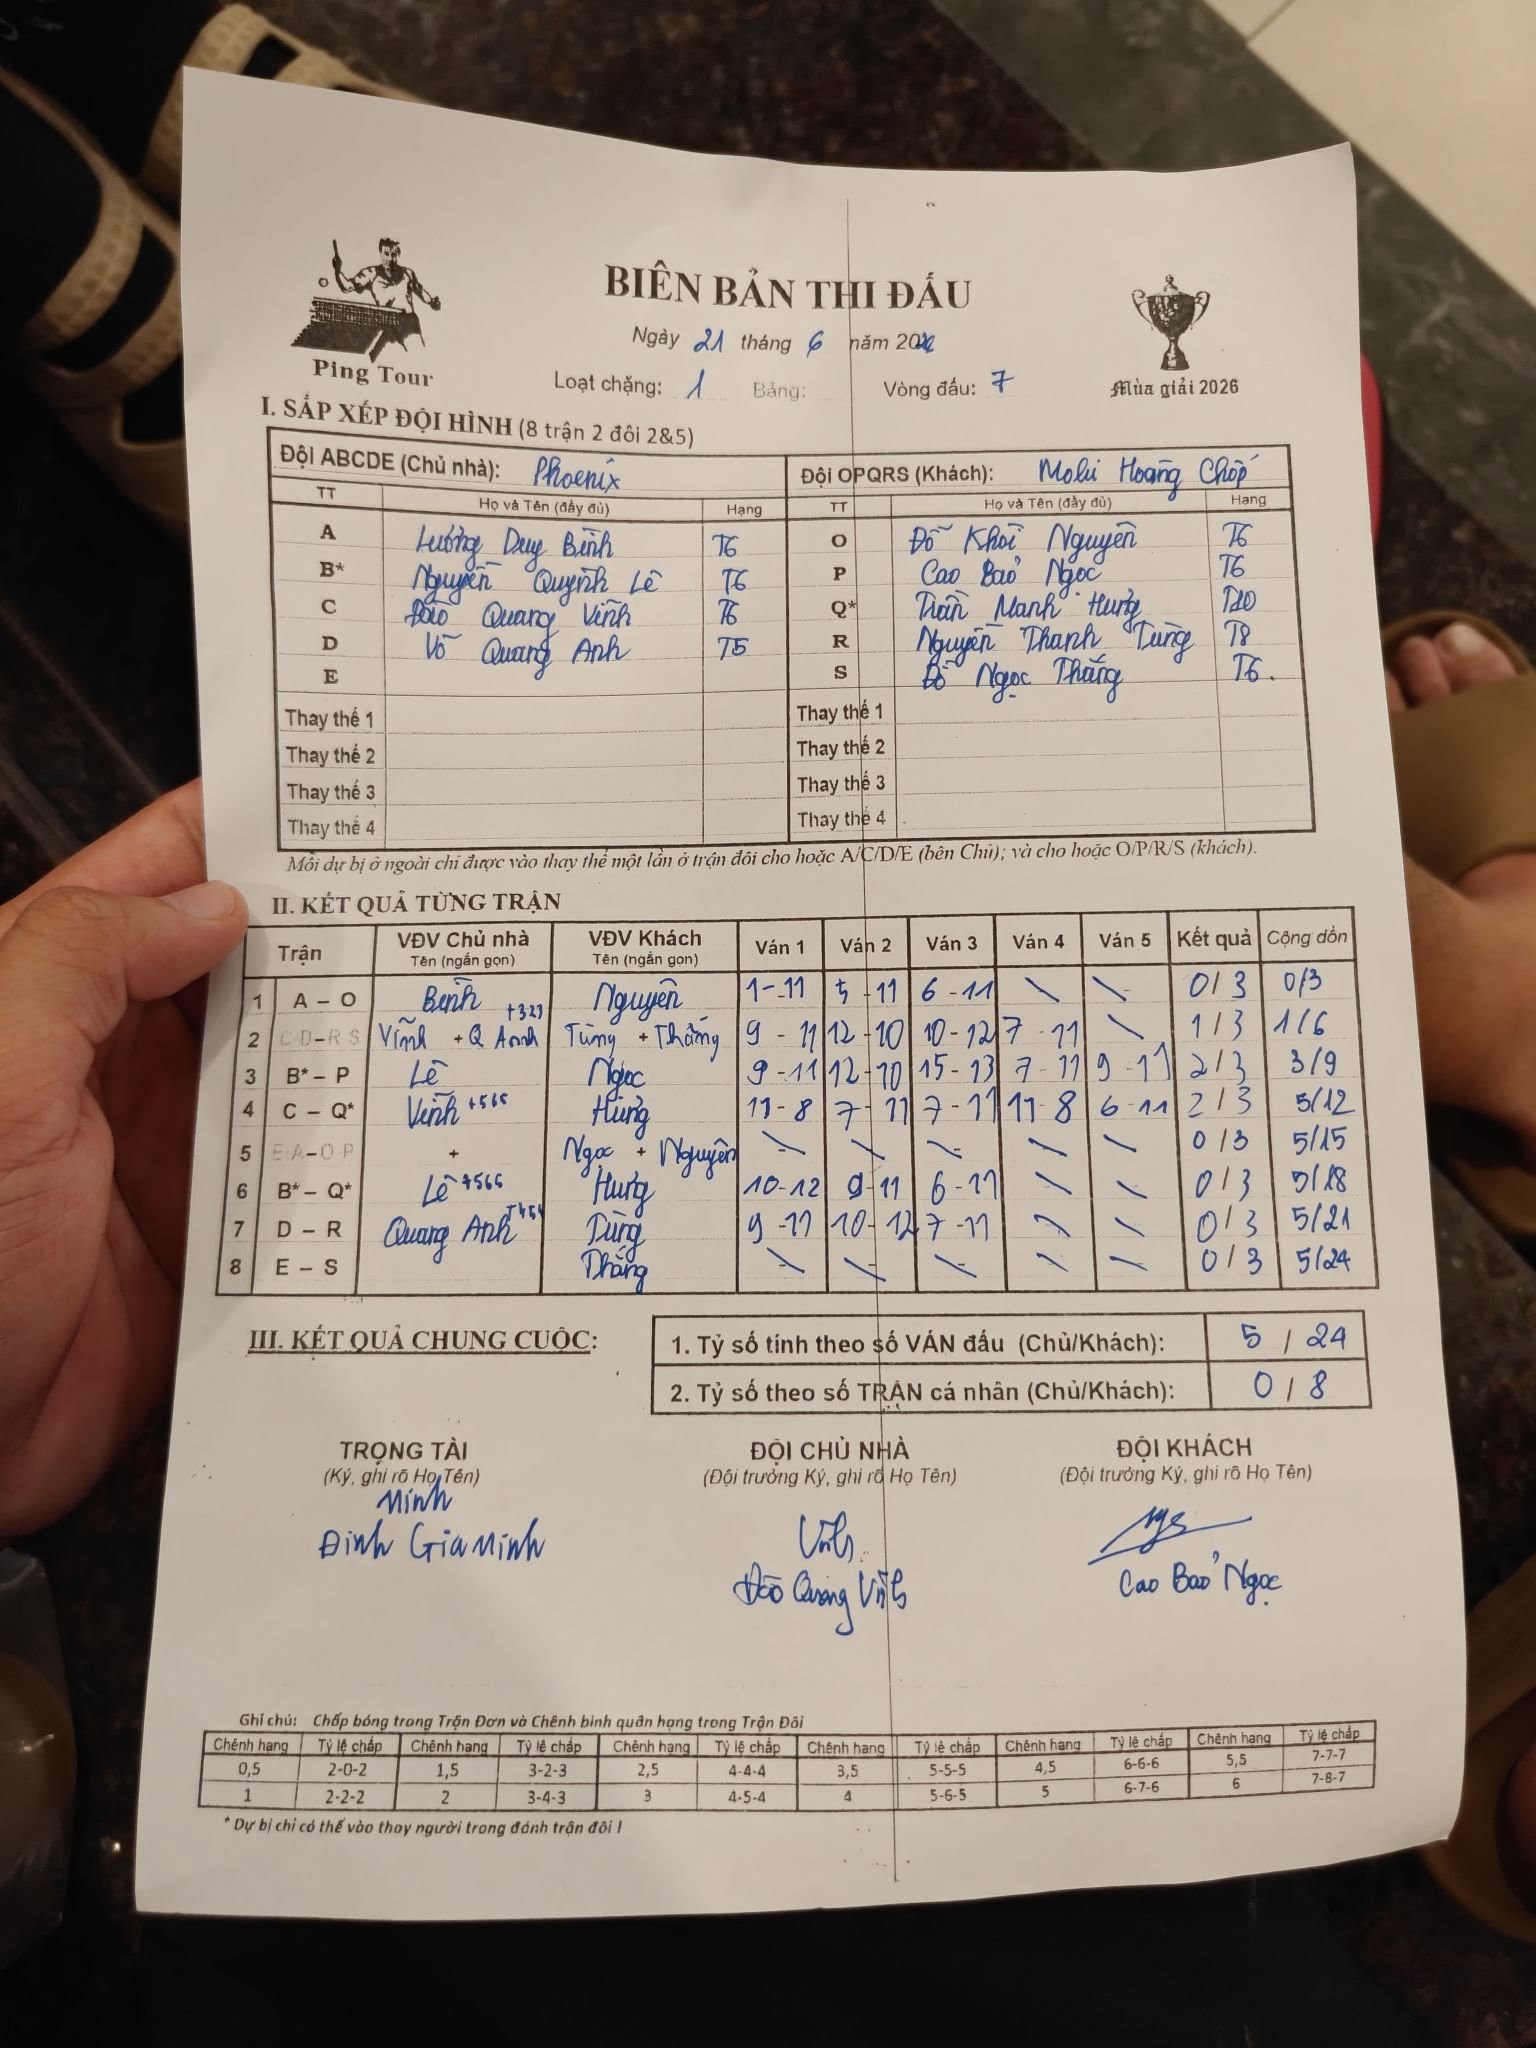 BIÊN BẢN THI ĐẤU
Ngày 21 tháng 6 năm 202
Ping Tour
Loạt chặng: 1 Bảng: Vòng đấu: 7
Mùa giải 2026
I. SẮP XẾP ĐỘI HÌNH (8 trận 2 đôi 2&5)
Đội ABCDE (Chủ nhà): Phoenix Đội OPQRS (Khách): Molii Hoàng Chóp
TT Họ và Tên (đầy đủ) Hạng TT Họ và Tên (đầy đủ) Hạng
A Lương Duy Bình T6 O Đỗ Khôi Nguyên T6
B* Nguyễn Quỳnh Lê T6 P Cao Bảo Ngọc T6
C Đào Quang Vinh T6 Q* Trần Mạnh Hưng T10
D Võ Quang Anh T5 R Nguyễn Thanh Tùng T8
E S Đỗ Ngọc Thắng T6.
Thay thế 1 Thay thế 1
Thay thế 2 Thay thế 2
Thay thế 3 Thay thế 3
Thay thế 4 Thay thế 4
Mỗi dự bị ở ngoài chỉ được vào thay thế một lần ở trận đôi cho hoặc A/C/D/E (bên Chủ); và cho hoặc O/P/R/S (khách).
II. KẾT QUẢ TỪNG TRẬN
Trận VĐV Chủ nhà Tên (ngắn gọn) VĐV Khách Tên (ngắn gọn) Ván 1 Ván 2 Ván 3 Ván 4 Ván 5 Kết quả Cộng dồn
1 A – O Bình Nguyên 1-11 5-11 6-11 \ \ 0/3 0/3
2 C D – R S Vĩnh + Q Anh +323 Tùng + Thắng 9-11 12-10 10-12 7-11 \ 1/3 1/6
3 B* – P Lê Ngọc 9-11 12-10 15-13 7-11 9-11 2/3 3/9
4 C – Q* Vinh +565 Hưng 11-8 7-11 7-11 11-8 6-11 2/3 5/12
5 E A – O P + Ngọc + Nguyên \ \ \ \ \ 0/3 5/15
6 B* – Q* Lê +565 Hưng 10-12 9-11 6-11 \ \ 0/3 5/18
7 D – R Quang Anh +454 Tùng 9-11 10-12 7-11 \ \ 0/3 5/21
8 E – S Thắng \ \ \ \ \ 0/3 5/24
III. KẾT QUẢ CHUNG CUỘC:
1. Tỷ số tính theo số VÁN đấu (Chủ/Khách): 5 / 24
2. Tỷ số theo số TRẬN cá nhân (Chủ/Khách): 0 / 8
TRỌNG TÀI ĐỘI CHỦ NHÀ ĐỘI KHÁCH
(Ký, ghi rõ Họ Tên) (Đội trưởng Ký, ghi rõ Họ Tên) (Đội trưởng Ký, ghi rõ Họ Tên)
Minh
Đinh Gia Minh Đào Quang Vinh Cao Bảo Ngọc
Ghi chú: Chấp bóng trong Trận Đơn và Chênh bình quân hạng trong Trận Đôi
Chênh hạng Tỷ lệ chấp Chênh hạng Tỷ lệ chấp Chênh hạng Tỷ lệ chấp Chênh hạng Tỷ lệ chấp Chênh hạng Tỷ lệ chấp Chênh hạng Tỷ lệ chấp
0,5 2-0-2 1,5 3-2-3 2,5 4-4-4 3,5 5-5-5 4,5 6-6-6 5,5 7-7-7
1 2-2-2 2 3-4-3 3 4-5-4 4 5-6-5 5 6-7-6 6 7-8-7
* Dự bị chỉ có thể vào thay người trong đánh trận đôi !